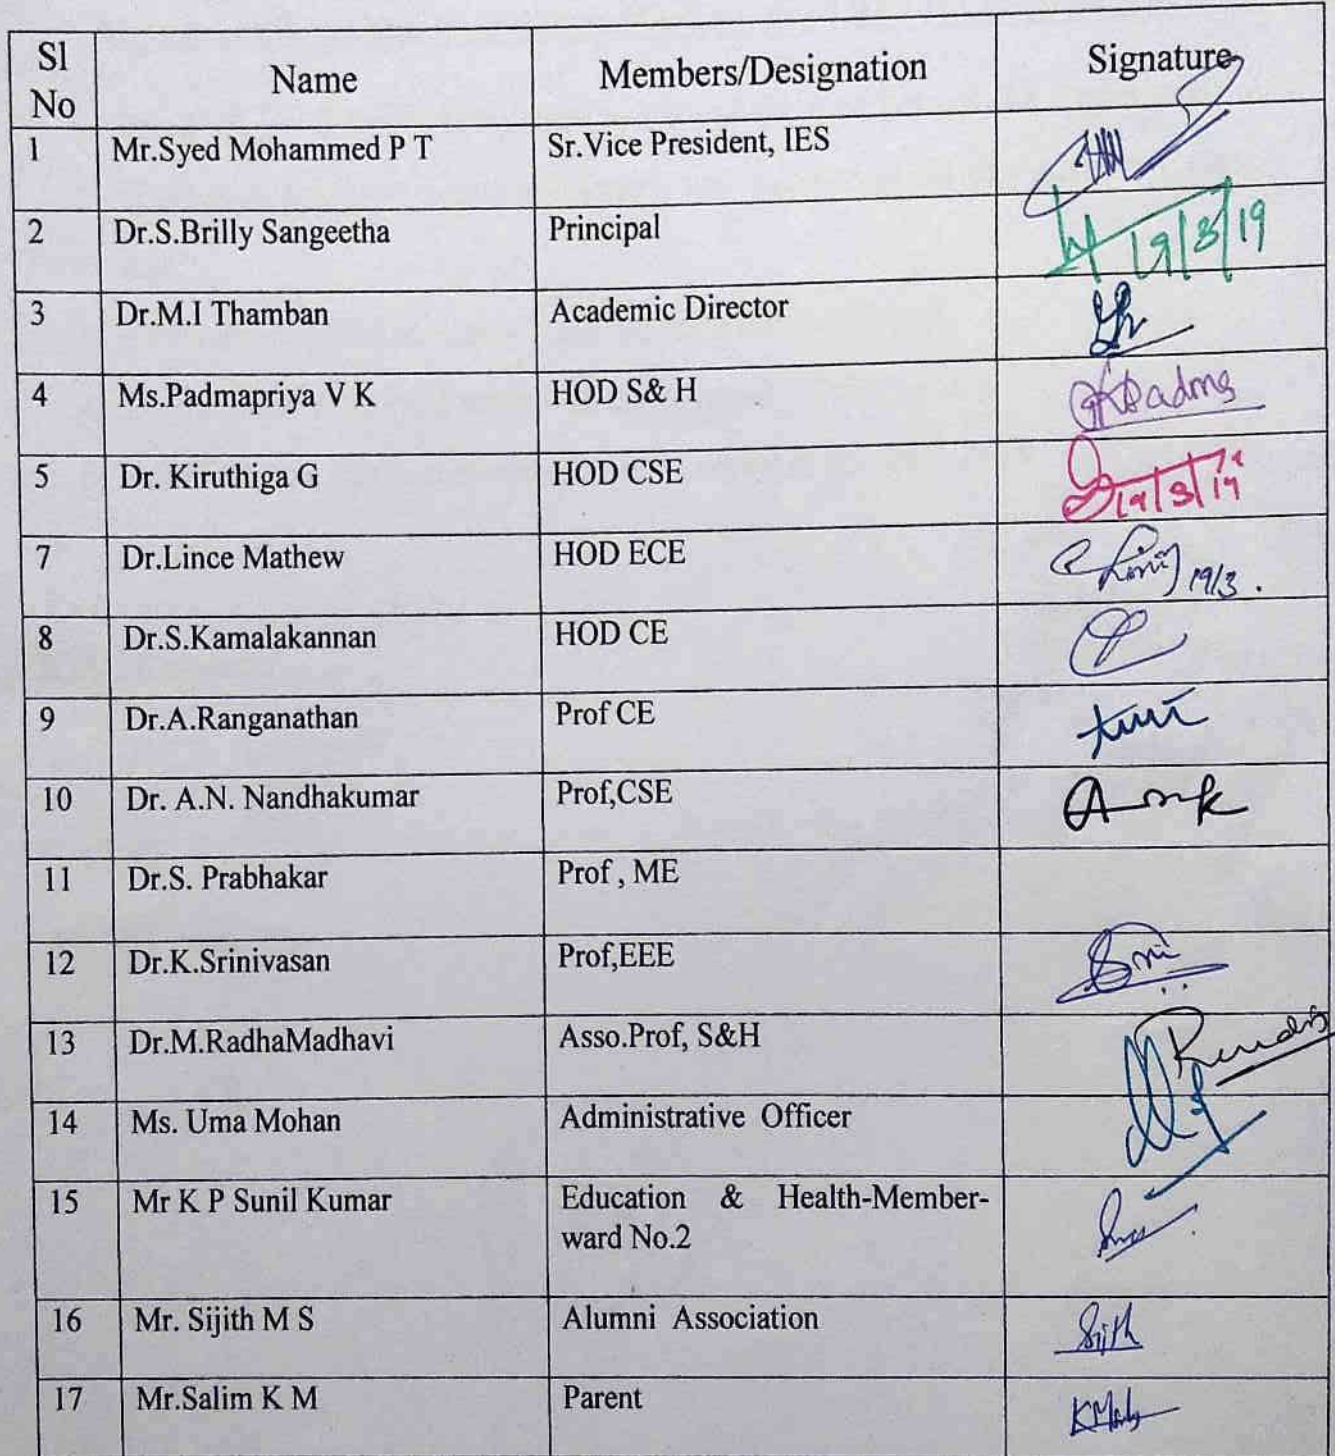 Sl No Name Members/Designation Signature
1 Mr.Syed Mohammed P T Sr.Vice President, IES
2 Dr.S.Brilly Sangeetha Principal 19/3/19
3 Dr.M.I Thamban Academic Director
4 Ms.Padmapriya V K HOD S& H
5 Dr. Kiruthiga G HOD CSE 19/3/19
7 Dr.Lince Mathew HOD ECE 19/3.
8 Dr.S.Kamalakannan HOD CE
9 Dr.A.Ranganathan Prof CE
10 Dr. A.N. Nandhakumar Prof,CSE
11 Dr.S. Prabhakar Prof , ME
12 Dr.K.Srinivasan Prof,EEE
13 Dr.M.RadhaMadhavi Asso.Prof, S&H
14 Ms. Uma Mohan Administrative Officer
15 Mr K P Sunil Kumar Education & Health-Member-
ward No.2
16 Mr. Sijith M S Alumni Association Sijith
17 Mr.Salim K M Parent